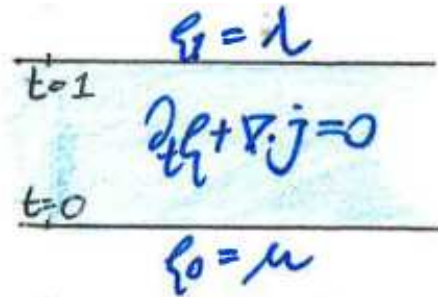 ρ₁ = λ
t=1
∂ₜρ + ∇·j = 0
t=0
ρ₀ = μ